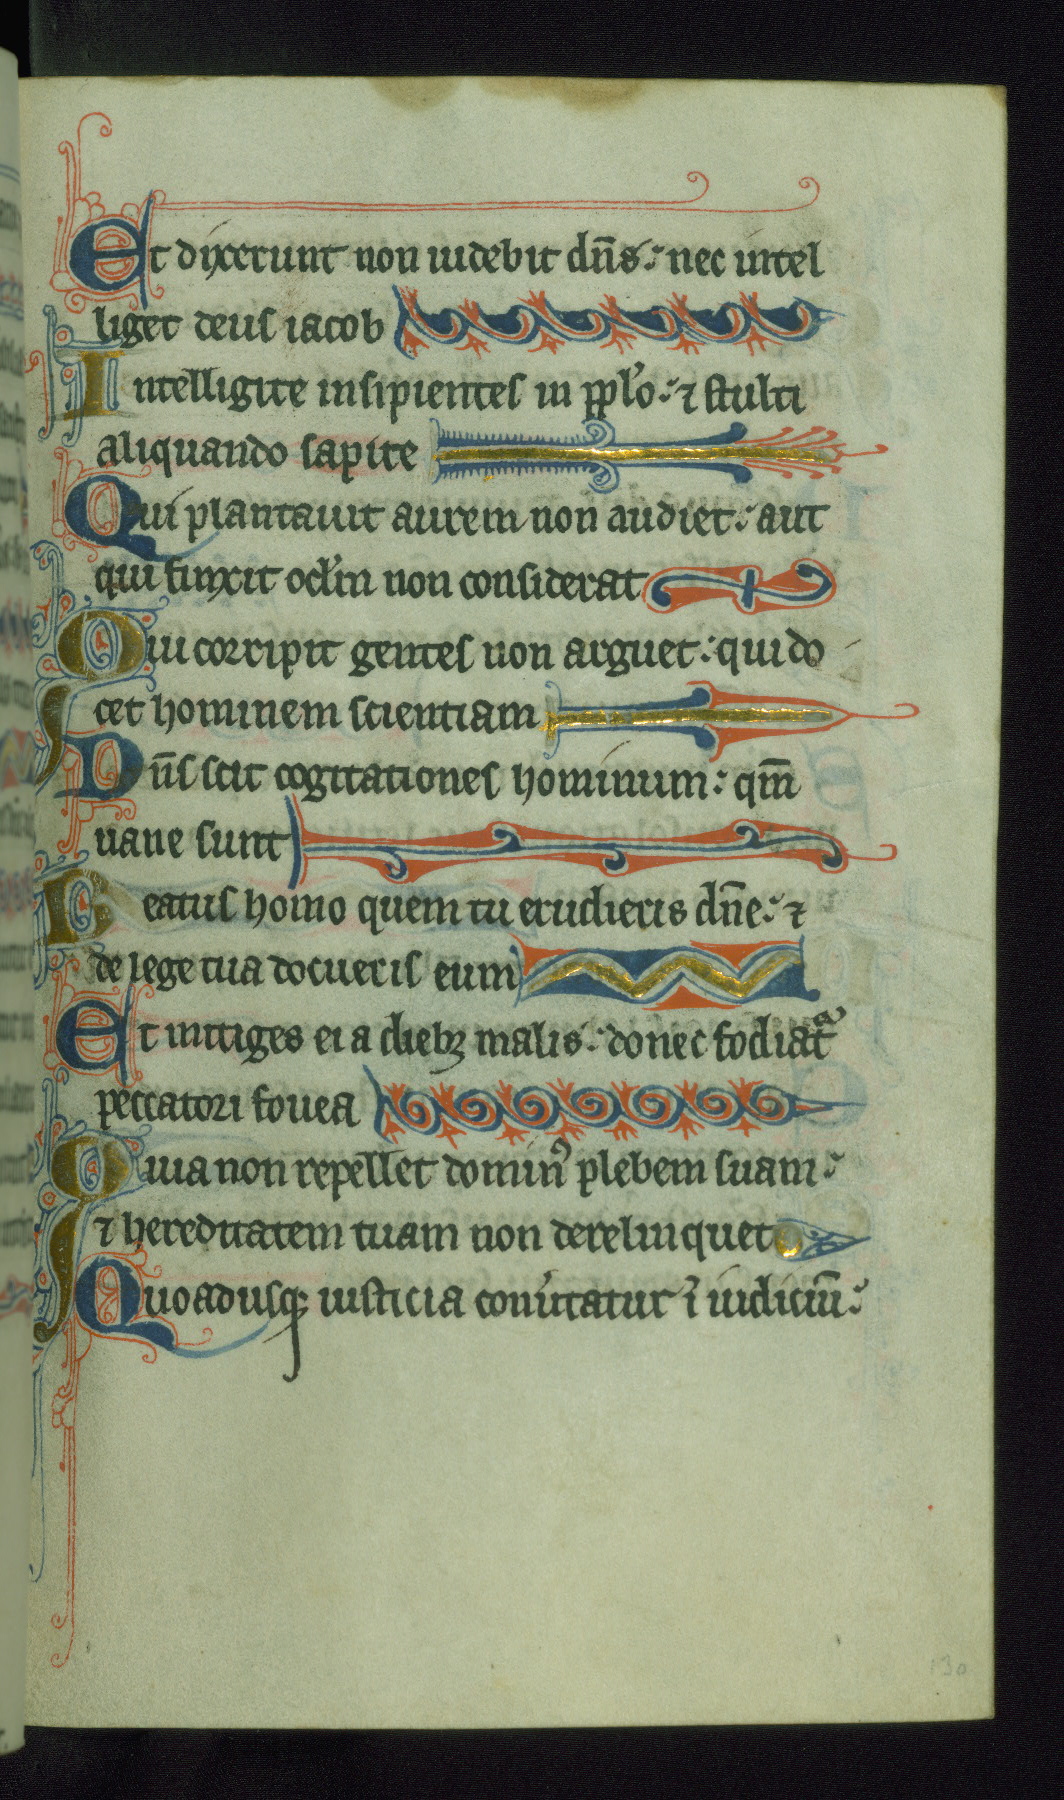 Et dixerunt non uidebit dñs: nec intel
liget deus iacob
Intelligite insipientes in pplo: ⁊ stulti
aliquando sapite
Qui plantauit aurem non audiet: aut
qui finxit oclm non considerat
Qui corripit gentes non arguet: qui do
cet hominem scientiam
Dñs scit cogitationes hominum: qm̄
uane sunt
Beatus homo quem tu erudieris dñe: ⁊
de lege tua docueris eum
Et mitiges ei a diebꝫ malis: donec fodiat᷑
peccatori fouea
Quia non repellet dominꝰ plebem suam:
⁊ hereditatem tuam non derelinquet
Quoadusqꝫ iusticia conu̾tatur ī iudiciū:
130